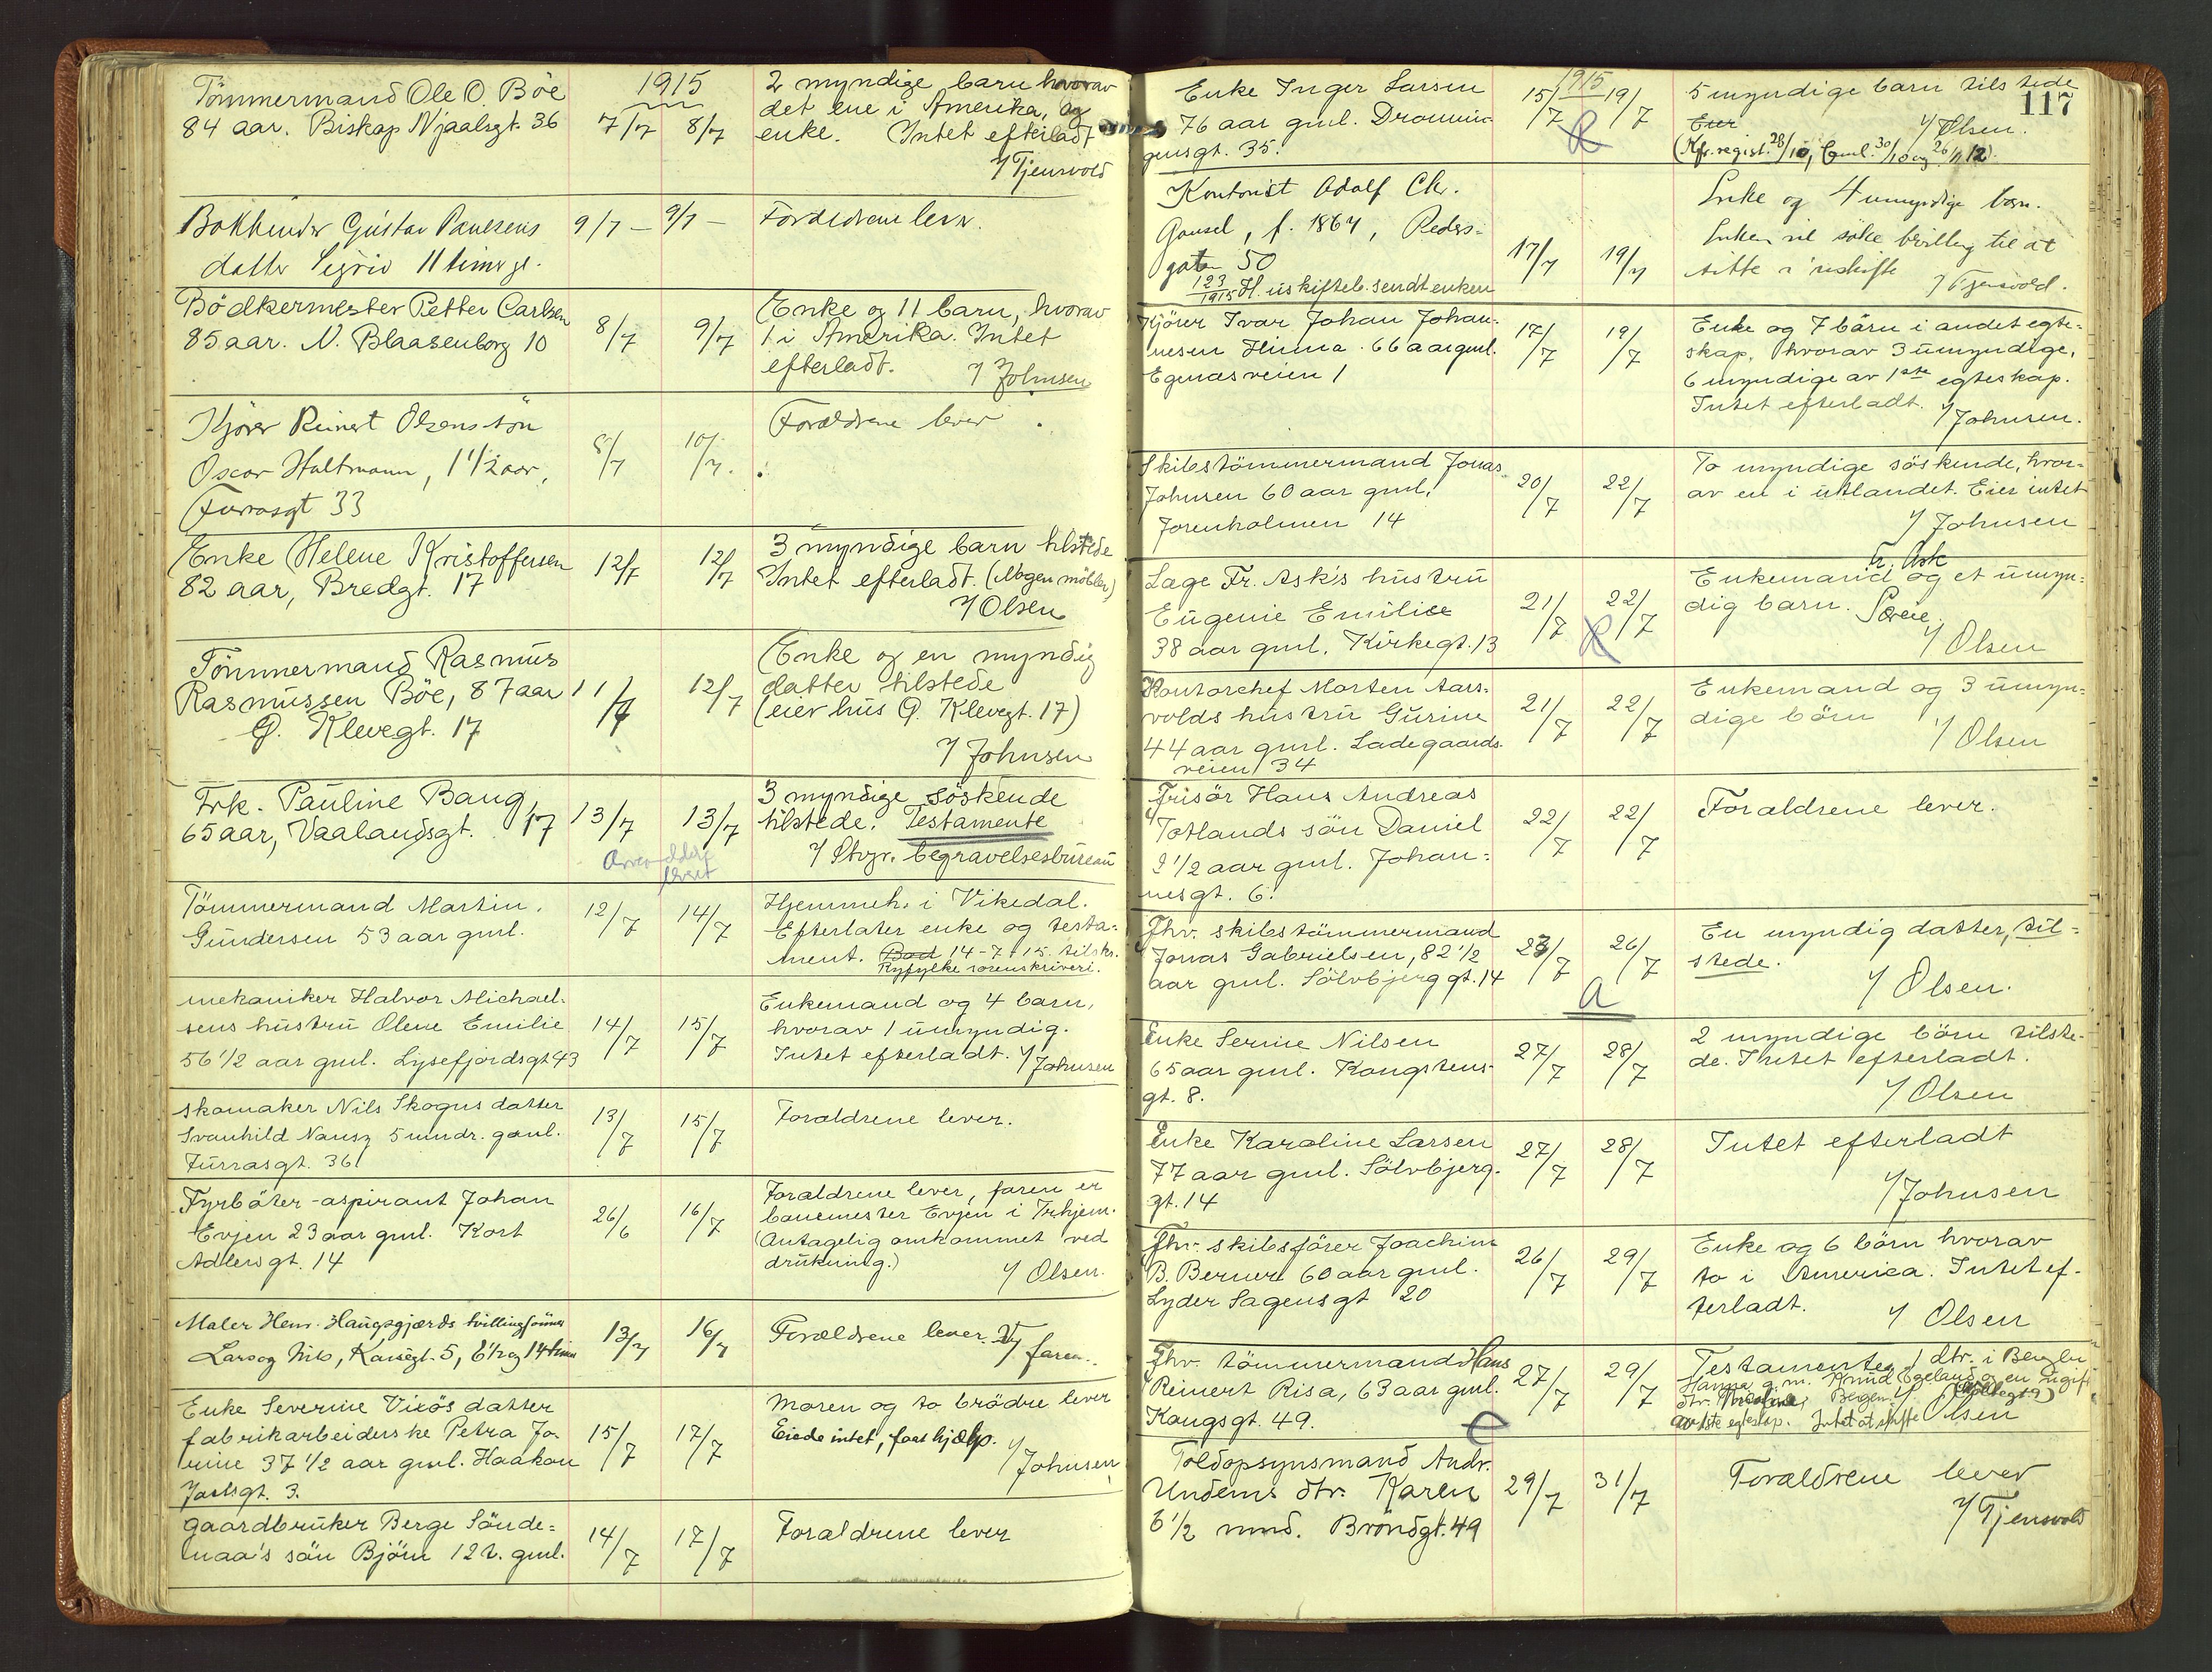 1915
Tömmermand Ole O. Böe
84 aar. Biskop Njaalsgt. 36
7/7 8/7
2 myndige barn hvorav
det ene i Amerika, og
enke. Intet efterladt
ɣ Tjensvold
Bokbinder Gustav Paulsens
datter Sigrid 11 timer gl.
9/7 — 9/7 —
Forældrene lever.
Bödkermester Petter Carlsen
85 aar. N. Blaasenborg 10
8/7 9/7
Enke og 11 barn, hvorav
1 i Amerika. Intet
efterladt.
ɣ Johnsen
Kjörer Reinert Olsens sön
Oscar Haltmann, 1 1/2 aar,
Furrasgt 33
8/7 10/7.
Forældrene lever
Enke Helene Kristoffersen
82 aar, Bredgt. 17
12/7 12/7
3 myndige barn tilstede
Intet efterladt. (Nogen möbler)
ɣ Olsen
Tömmermand Rasmus
Rasmussen Böe, 87 aar
G. Klevegt. 17
11/7 12/7
Enke og en myndig
datter tilstede
(eier hus G. Klevegt. 17)
ɣ Johnsen
Frk. Pauline Baug,
65 aar, Vaalandsgt. 17
13/7 13/7
3 myndige söskende
tilstede. Testamente
ɣ Stvgr. begravelsesbureau
Tömmermand Martin
Gundersen 53 aar gml.
12/7 14/7
Hjemmeh. i Vikedal.
Efterlater enke og testa-
ment. Bod 14-7-15 tilskr.
Ryfylke sorenskriveri.
mekaniker Halvor Michael-
sens hustru Olene Emilie
56 1/2 aar gml. Lysefjordsgt 43
14/7 15/7
Enkemand og 4 barn,
hvorav 1 umyndig.
Intet efterladt. ɣ Johnsen
skomaker Nils Skogns datter
Svanhild Nansy 5 mndr. gaml.
Furrasgt. 36
13/7 15/7
Forældrene lever.
Fyrböter-aspirant Johan
Evjen 23 aar gml. Kort
Adlersgt. 14
26/6 16/7
Forældrene lever, faren er
banemester Evjen i Trhjem.
(Antagelig omkommet ved
drukning.)
ɣ Olsen.
Maler Henr. Haugsgjærds tvillingsönner
Lars og Nils, Karsegt. 5, 6 1/2 og 14 timer
13/7 16/7
Forældrene lever.
ɣ faren.
Enke Severine Vixös datter
fabrikarbeiderske Petra Jo-
rine 37 1/2 aar gml. Haakon
Jarlsgt. 3.
15/7 17/7
Moren og to brödre lever
Eiede intet, faar hjælp.
ɣ Johnsen
gaardbruker Berge Sönde-
naa's sön Björn 12 t. gml.
14/7 17/7
Forældrene lever
117
1915
Enke Inger Larsen
76 aar gml. Dronnin-
gensgt. 35.
15/7 19/7
R
5 myndige barn tilstede
Eier
ɣ Olsen.
(Kfr. regist. 28/10, Gml. 30/10 og 26/11 12).
Kontorist Adolf Chr.
Gausel, f. 1864, Peders-
gaten 50
123/1915 H. uskifteb. sendt enken
17/7 19/7
Enke og 4 umyndige barn.
Enken vil söke bevilling til at
sitte i uskifte
ɣ Tjensvold.
Kjörer Ivar Johan Johan-
nesen Hinna. 66 aar gml.
Egenæsveien 1
17/7 19/7
Enke og 7 barn i andet egte-
skap, hvorav 3 umyndige,
6 myndige av 1ste egteskap.
Intet efterladt.
ɣ Johnsen.
Skibstömmermand Jonas
Johnsen 60 aar gml.
Jorenholmen 14
20/7 22/7
To myndige söskende, hvor-
av en i utlandet. Eier intet
ɣ Johnsen
Lage Fr. Ask's hustru
Eugenie Emilie
38 aar gml. Kirkegt. 13
21/7 22/7
R
Fr. Ask
Enkemand og et umyn-
dig barn. Særeie.
ɣ Olsen
Kontorchef Morten Aars-
volds hustru Gurine
44 aar gml. Ladegaards-
veien 34
21/7 22/7
Enkemand og 3 umyn-
dige börn
ɣ Olsen
Frisör Hans Andreas
Totlands sön Daniel
2 1/2 aar gml. Johan-
nesgt. 6.
22/7 22/7
Forældrene lever.
Fhv. skibstömmermand
Jonas Gabrielsen, 82 1/2
aar gml. Sölvbjerggt. 14
23/7 26/7
a
En myndig datter, til-
stede.
ɣ Olsen.
Enke Serine Nilsen
65 aar gml. Kongstens-
gt. 8.
27/7 28/7
2 myndige börn tilste-
de. Intet efterladt.
ɣ Olsen
Enke Karoline Larsen
77 aar gml. Sölvbjerg-
gt. 14
27/7 28/7
Intet efterladt
ɣ Johnsen
Fhv. skibsförer Joachim
B. Berner 60 aar gml.
Lyder Sagensgt 20
26/7 29/7
Enke og 6 börn hvorav
to i America. Intet ef-
terladt.
ɣ Olsen
Fhv. tömmermand Hans
Reinert Risa, 63 aar gml.
Kongsgt. 49.
27/7 29/7
e
Testamente, 1 dtr. i Bergen
Hanna g. m. Knud Egeland og en ugift
dtr. Bergen
av 1ste egteskap. Intet at skifte Olsen
Toldopsynsmand Andr.
Undems dtr. Karen
6 1/2 mnd. Bröndgt. 49
29/7 31/7
Forældrene lever
ɣ Tjensvold